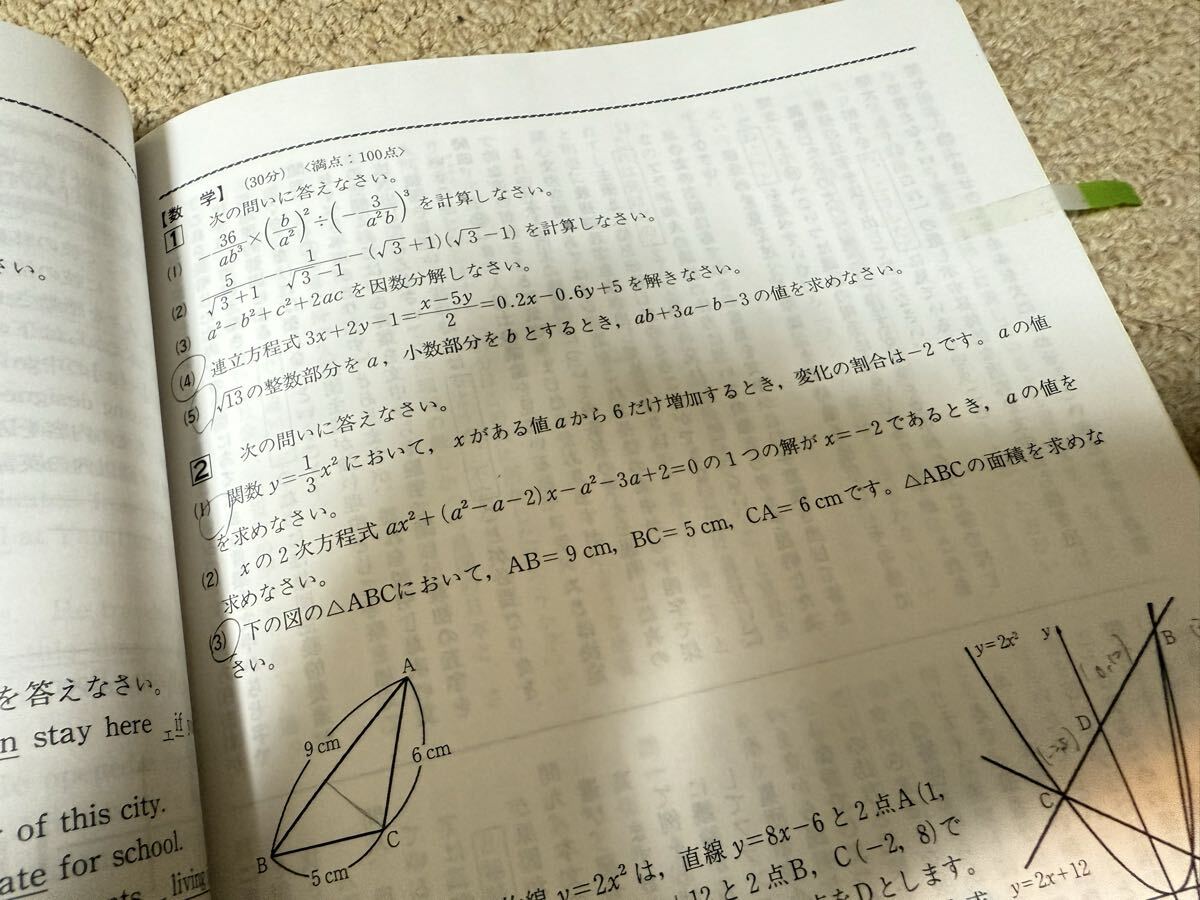 さい。
を答えなさい。
n stay here エif
of this city.
ate for school.
living
【数 学】 (30分) 〈満点：100点〉
1 次の問いに答えなさい。
(1) 36/ab³×(b/a²)²÷(－3/a²b)³ を計算しなさい。
(2) 5/(√3+1)－1/(√3－1)－(√3+1)(√3－1) を計算しなさい。
(3) a²－b²+c²+2ac を因数分解しなさい。
(4) 連立方程式 3x+2y－1=(x－5y)/2=0.2x－0.6y+5 を解きなさい。
(5) √13の整数部分をa，小数部分をbとするとき，ab+3a－b－3の値を求めなさい。
2 次の問いに答えなさい。
(1) 関数y=1/3x²において，xがある値aから6だけ増加するとき，変化の割合は－2です。aの値
を求めなさい。
(2) xの2次方程式 ax²+(a²－a－2)x－a²－3a+2=0の1つの解がx=－2であるとき，aの値を
求めなさい。
(3) 下の図の△ABCにおいて，AB=9cm，BC=5cm，CA=6cmです。△ABCの面積を求めな
さい。
A
9cm
6cm
B
C
5cm
y=2x²
y
B
D
C
y=2x+12
線y=2x²は，直線y=8x－6と2点A(1,
+12と2点B，C(－2, 8)で
点をDとします。